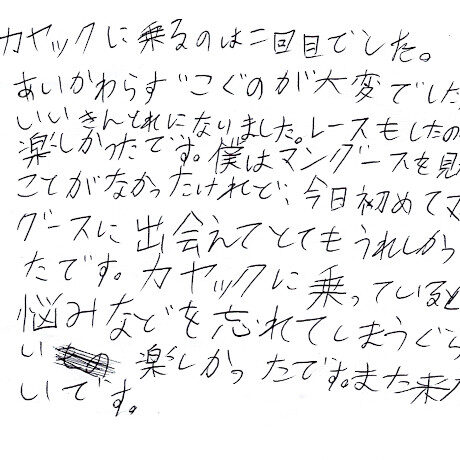 カヤックに乗るのは二回目でした。
あいかわらず こぐのが大変でした
いいきんとれになりました。レースもしたの
楽しかったです。僕はマングースを見
ことがなかったけれど、今日初めてマ
グースに出会えてとてもうれしかっ
たです。カヤックに乗っていると
悩みなどを忘れてしまうぐら
い 楽しかったです。また来た
いです。